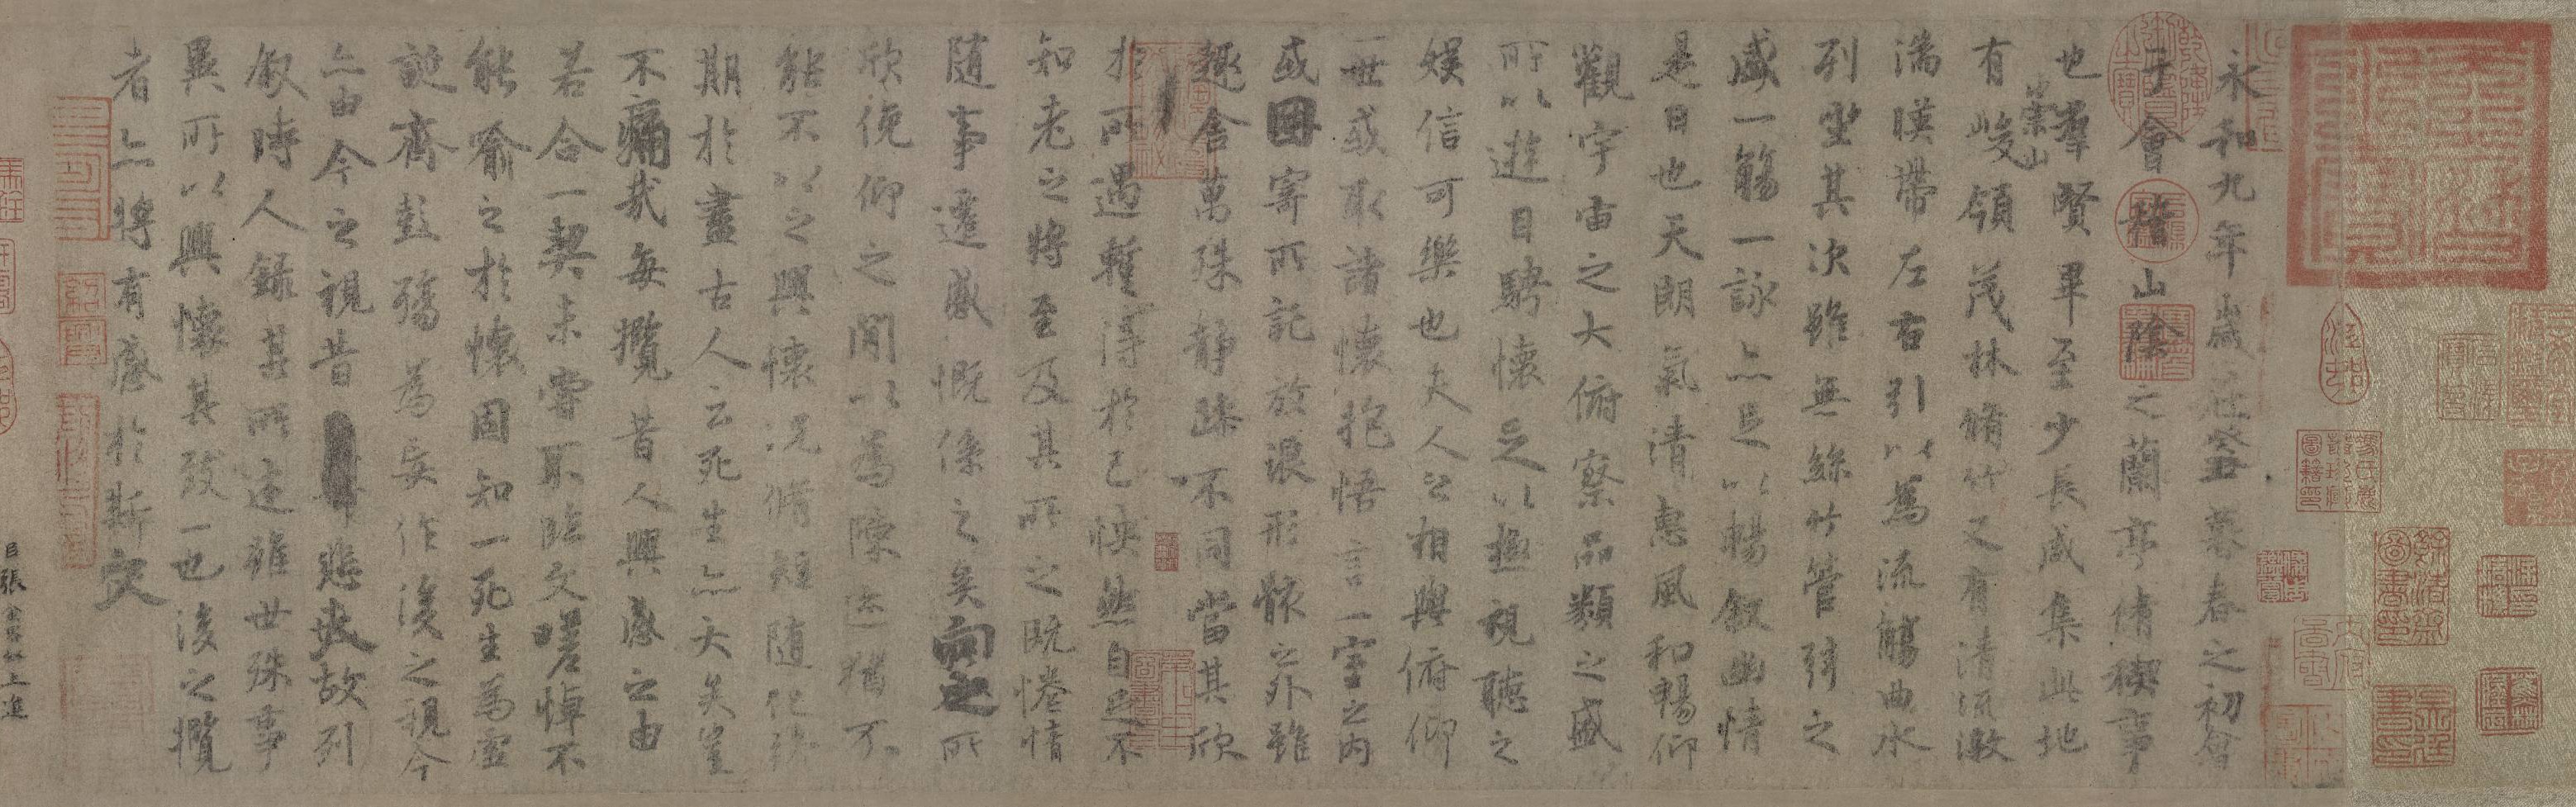 永和九年歲在癸丑暮春之初會
于會稽山陰之蘭亭脩稧事
也羣賢畢至少長咸集此地
有崇山峻領茂林脩竹又有清流激
湍暎帶左右引以為流觴曲水
列坐其次雖無絲竹管弦之
盛一觴一詠亦足以暢敘幽情
是日也天朗氣清惠風和暢仰
觀宇宙之大俯察品類之盛
所以遊目騁懷足以極視聽之
娛信可樂也夫人之相與俯仰
一世或取諸懷抱悟言一室之內
或因寄所託放浪形骸之外雖
趣舍萬殊靜躁不同當其欣
於所遇暫得於己怏然自足不
知老之將至及其所之既惓情
隨事遷感慨係之矣向之所
欣俛仰之閒以為陳迹猶不
能不以之興懷況脩短隨化終
期於盡古人云死生亦大矣豈
不痛哉每攬昔人興感之由
若合一契未嘗不臨文嗟悼不
能喻之於懷固知一死生為虛
誕齊彭殤為妄作後之視今
亦由今之視昔悲夫故列
敘時人錄其所述雖世殊事
異所以興懷其致一也後之攬
者亦將有感於斯文
臣張金界奴上進